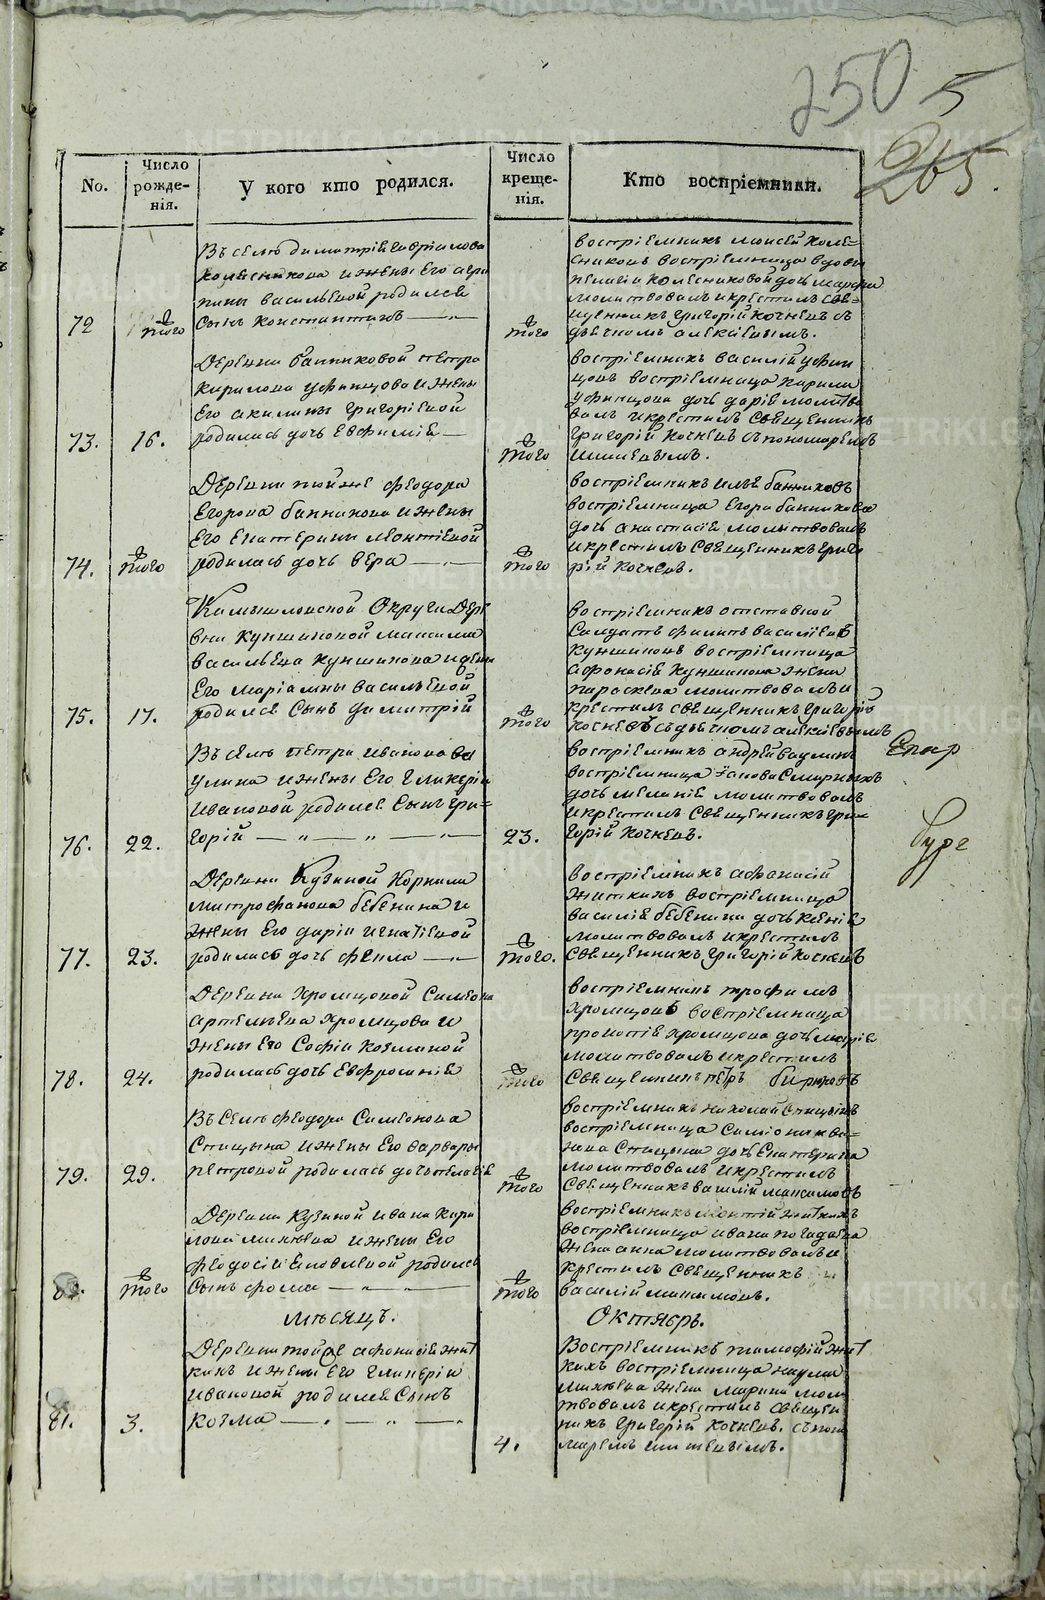 250
5
265.
No.
Число рожденія.
У кого кто родился.
Число крещенія.
Кто воспріемники.
72
того
Въ селѣ Димитрія Гавріилова
Колесникова и жены его Агри
пины Васильевой родился
сынъ Константинъ
того
воспріемникъ Моисей Коле=
сниковъ воспріемница вдовы
Пелагіи Колесниковой дочь
молитвовалъ и крестилъ Свя=
щенникъ Григорій Кочневъ съ
дьячкомъ Алексіевымъ.
73.
16.
Деревни Банниковой Петра
Кирилова Уфинцова и жены
его Акилины Григоріевой
родилась дочь Евфимія
того
воспріемникъ Василій Уфин
цовъ воспріемница Кирила
Уфинцова дочь Дарія молитво
валъ и крестилъ Священникъ
Григорій Кочневъ съ пономаремъ
74.
того
Деревни той же Феодора
Егорова Банникова и жены
его Екатерины Леонтіевой
родилась дочь Вера
того
воспріемникъ Илья Банниковъ
воспріемница Егора Банникова
дочь Анастасія молитвовалъ
и крестилъ Священникъ Григо
рій Кочневъ.
75.
17.
Камышловской Округи Дере
вни Куншиковой Максима
Васильева Куншикова и жены
его Маріамны Васильевой
родился сынъ Димитрій
того
воспріемникъ отставной
Салдатъ Филипъ Василіевъ
Куншиковъ воспріемница
Афонасія Куншикова жена
Параскева молитвовалъ и
крестилъ священникъ Григорій
Кочневъ съ дьячкомъ Алексіевымъ
76.
22.
Въ селѣ Петра Иванова Ва
улина и жены его Гликеріи
Ивановой родился сынъ Гри=
горій
23.
воспріемникъ Андрей Ваулинъ
воспріемница Іакова Смирныхъ
дочь Меланія молитвовалъ
и крестилъ Священникъ Гри=
горій Кочневъ.
77.
23.
Деревни Кузиной Корнила
Митрофанова Бебенина и
жены его Даріи Игнатіевой
родилась дочь Фекла
того.
воспріемникъ Афанасій
Житкихъ воспріемница
Василія Бебенина дочь Ксенія
молитвовалъ и крестилъ
Священникъ Григорій Кочневъ
78.
24.
Деревни Хромцовой Симеона
Артемьева Хромцова и
жены его Софіи Козминой
родилась дочь Евфросинія
того
воспріемникъ Трофимъ
Хромцовъ воспріемница
Прокопія Хромцова дочь Марія
молитвовалъ и крестилъ
Священникъ Петръ Бирюковъ
79.
29.
Въ Селѣ Феодора Симеонова
Спицына и жены его Варвары
Петровой родилась дочь Пелагія
того
воспріемникъ Николай Спицынъ
воспріемница Симеона Ива=
нова Спицына дочь Екатерина
молитвовалъ и крестилъ
Священникъ Василій Максимовъ
того
Деревни Кузиной Ивана Кири
лова Михѣева и жены его
Феодосіи Яковлевой родился
сынъ Фома
того
воспріемникъ Леонтій Житкихъ
воспріемница Ивана Погадаева
жена Анна молитвовалъ и
крестилъ Священникъ
Василій Максимовъ.
мѣсяцъ. Октябрь.
81.
3.
Деревни той же Афонасія Жит
кихъ и жены его Гликеріи
Ивановой родился Сынъ
Козма
4.
Воспріемникъ Тимофій Жит
кихъ воспріемница Наума
Михѣева жена Марина моли
твовалъ и крестилъ Священ
никъ Григорій Кочневъ. съ поно
маремъ